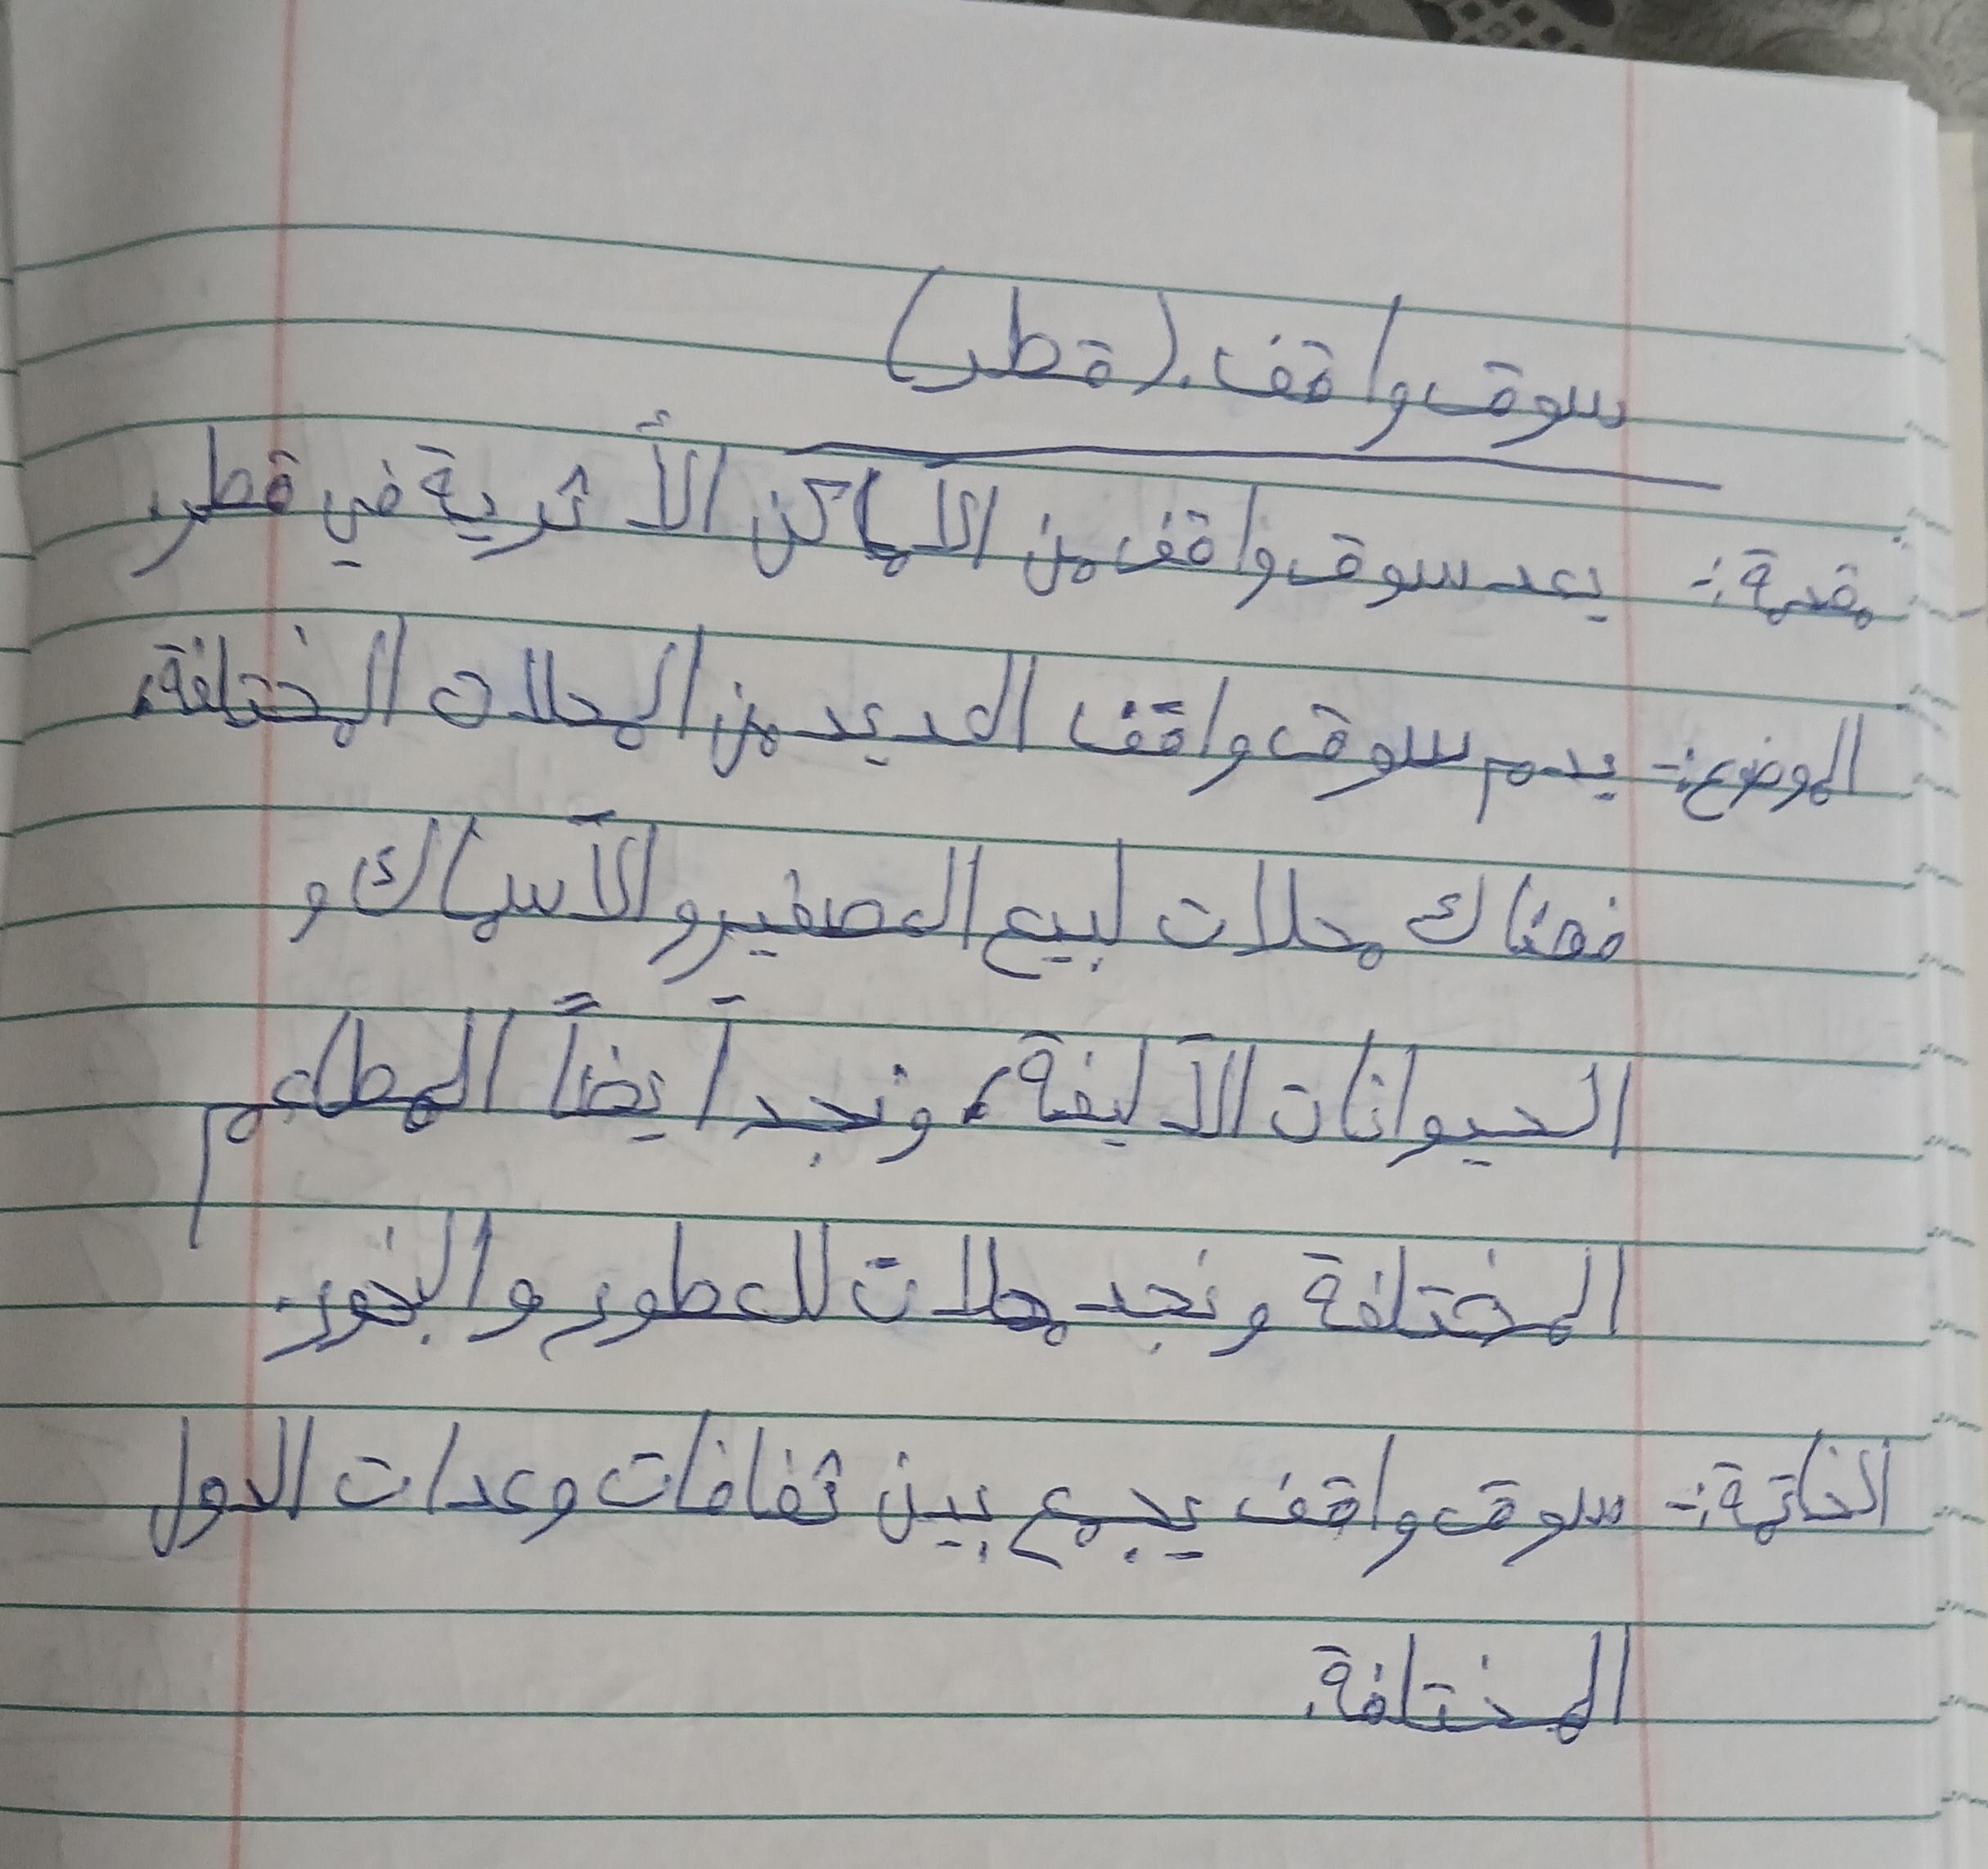 سوق واقف. (قطر)
مقدمة:- يعد سوق واقف من الاماكن الأثرية في قطر.
الموضوع:- يدم سوق واقف العديد من المحلات المختلفة،
فهناك محلات لبيع العصفير والأسماك و
الحيوانات الأليفة، ونجد أيضاً المطاعم
المختلفة ونجد محلات للعطور والبخور.
الخاتمة:- سوق واقف يجمع بين ثفافات وعدات الدول
المختلفة.